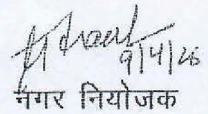 9/4/26
नगर नियोजक